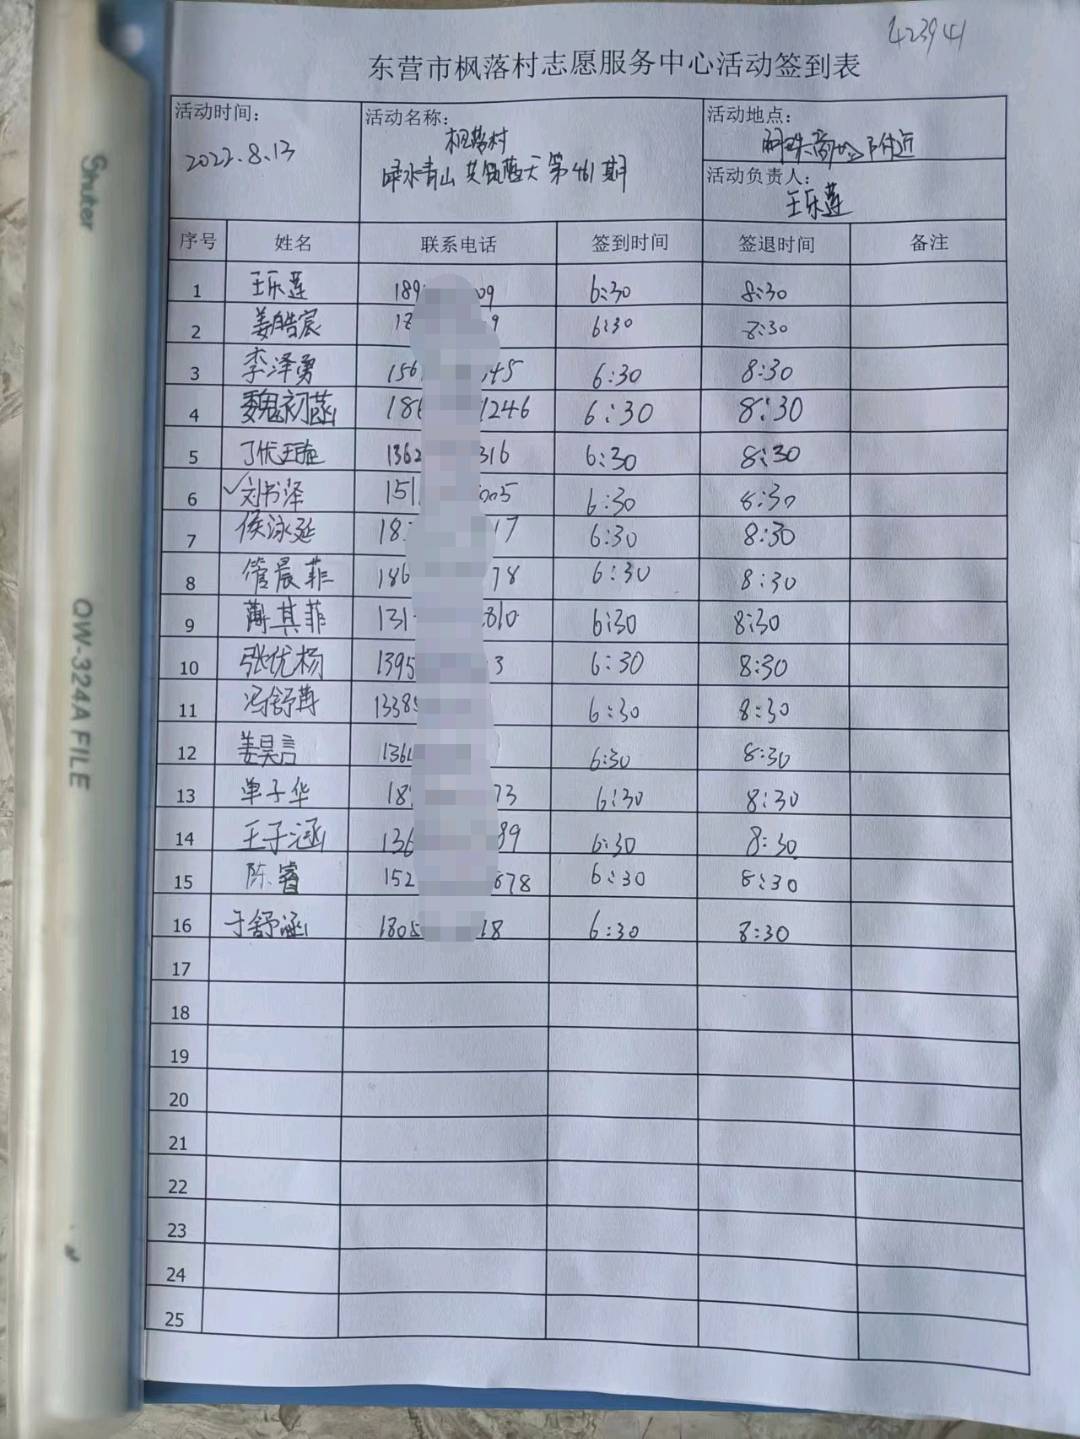 423941
东营市枫落村志愿服务中心活动签到表
活动时间: 2022.8.13
活动名称: 枫落村
绿水青山 共筑蓝天 第461期
活动地点: 明珠商 附近
活动负责人: 王乐莲
序号 姓名 联系电话 签到时间 签退时间 备注
1 王乐莲 189 09 6:30 8:30
2 姜皓宸 18 9 6:30 8:30
3 李泽勇 156 45 6:30 8:30
4 魏初菡 186 1246 6:30 8:30
5 1362 316 6:30 8:30
6 ✓刘书泽 151 005 6:30 8:30
7 侯泳延 18 17 6:30 8:30
8 管晨菲 186 78 6:30 8:30
9 蔺其菲 131 810 6:30 8:30
10 张优杨 1395 3 6:30 8:30
11 冯舒苒 1338 6:30 8:30
12 姜昊言 136 6:30 8:30
13 单子华 18 73 6:30 8:30
14 王子涵 136 89 6:30 8:30
15 陈睿 152 878 6:30 8:30
16 于舒涵 1805 18 6:30 8:30
17
18
19
20
21
22
23
24
25
Shuter
QW-324A FILE